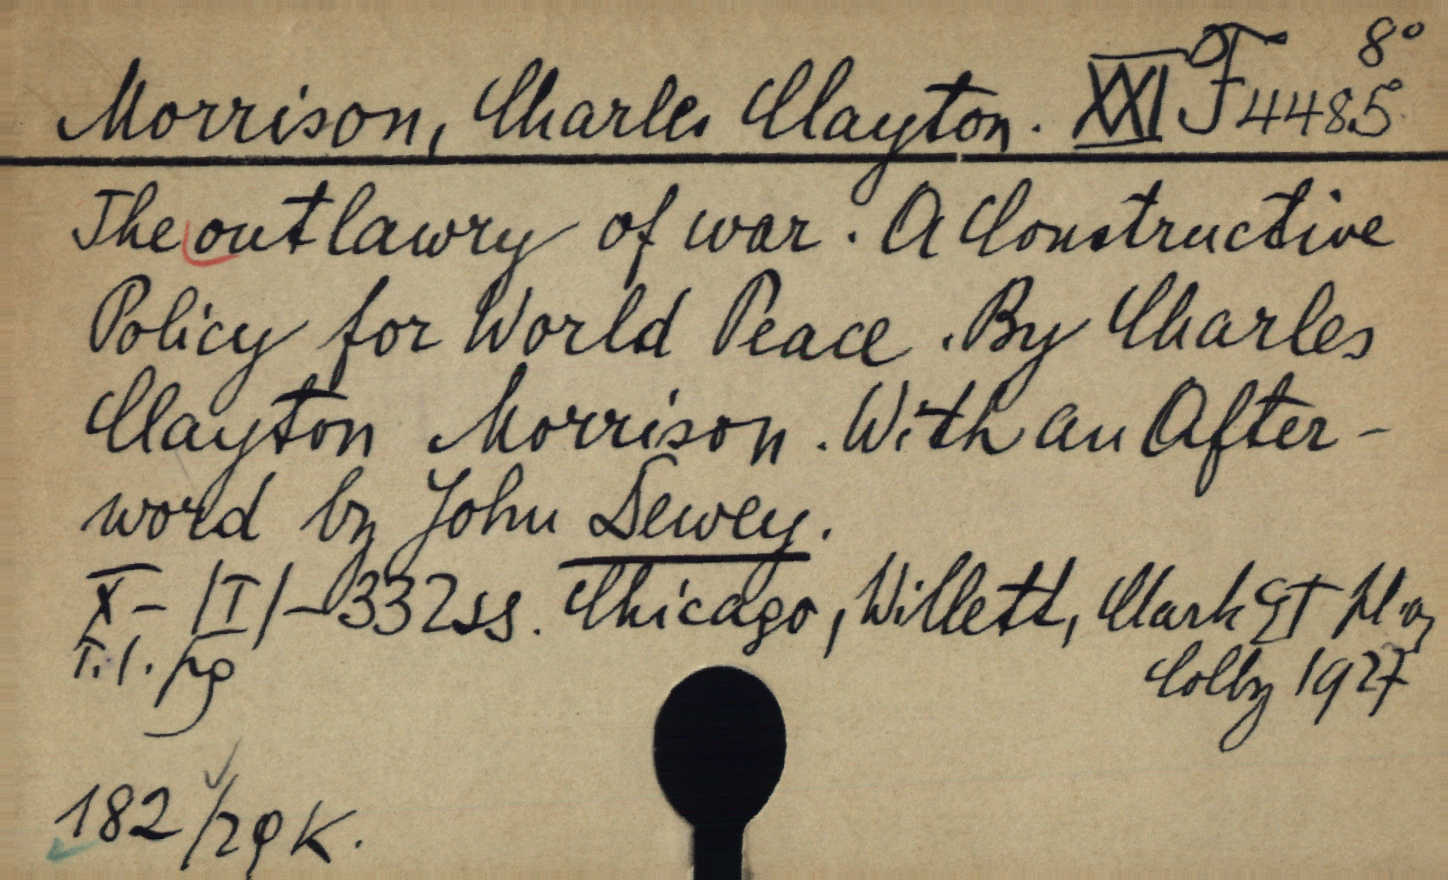 8°
Morrison, Charles Clayton. XXI F 4485
The outlawry of war. A Constructive
Policy for World Peace. By Charles
Clayton Morrison. With an After-
word by John Dewey.
X-|I|-332ss. Chicago, Willett, Clark Et
T.l.
Colby 1927
182/29 K.